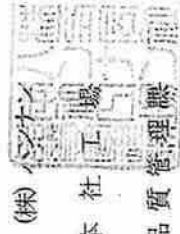 (株) ハンナン
本社工場
品質管理課